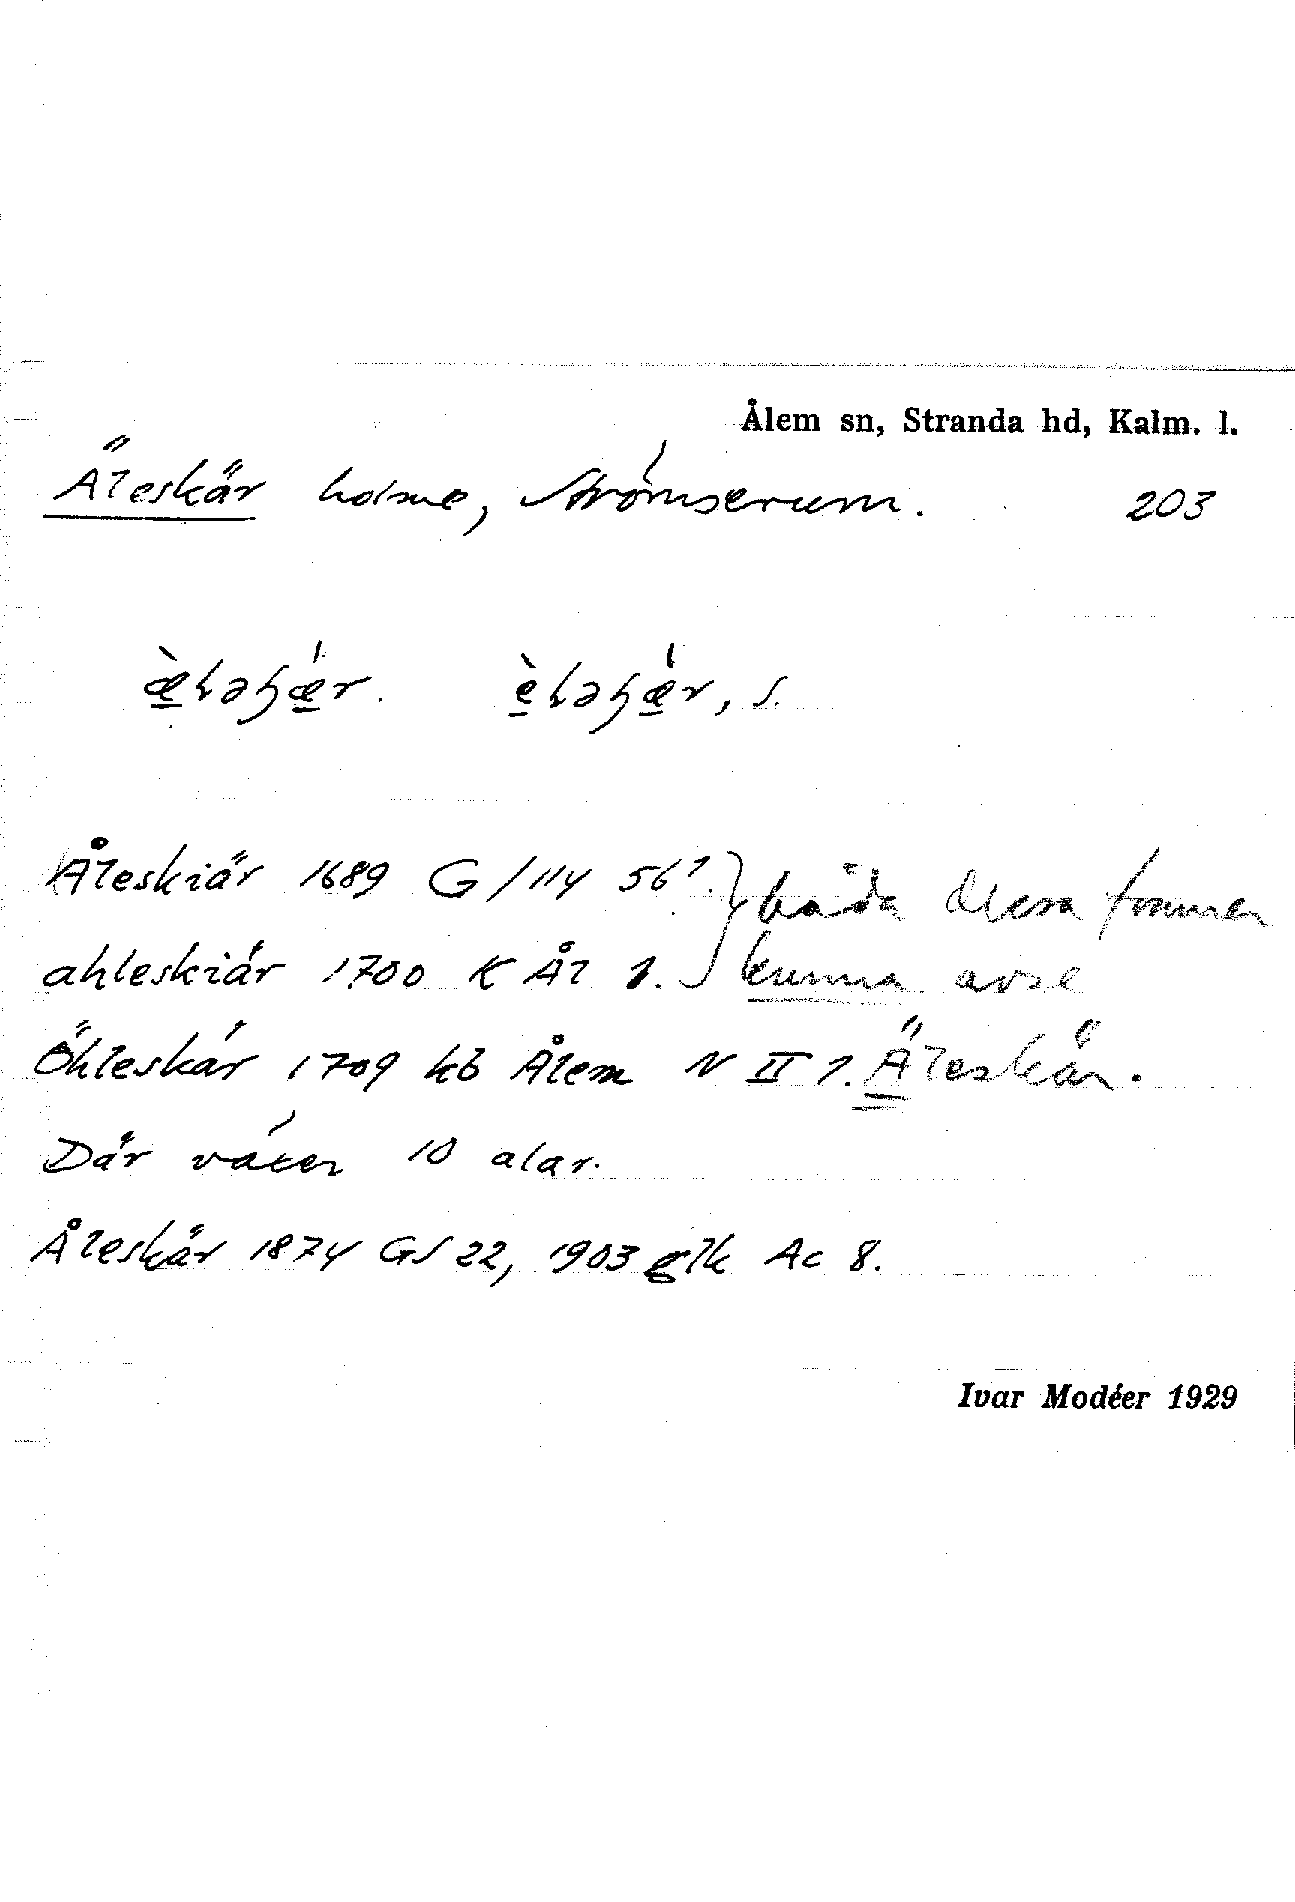 Ålem sn, Stranda hd, Kalm. l.
Äleskär holme, Strömserum. 203
Åleskiär 1689 G/114 56¹. } båda dessa former
ahleskiär 1700 K Ål 1. } kunna avse
Öhleskär 1709 kb Ålem N II 1. Äleskär.
Där växer 10 alar.
Åleskär 1874 GS 22, 1903 glk Ac 8.
Ivar Modéer 1929